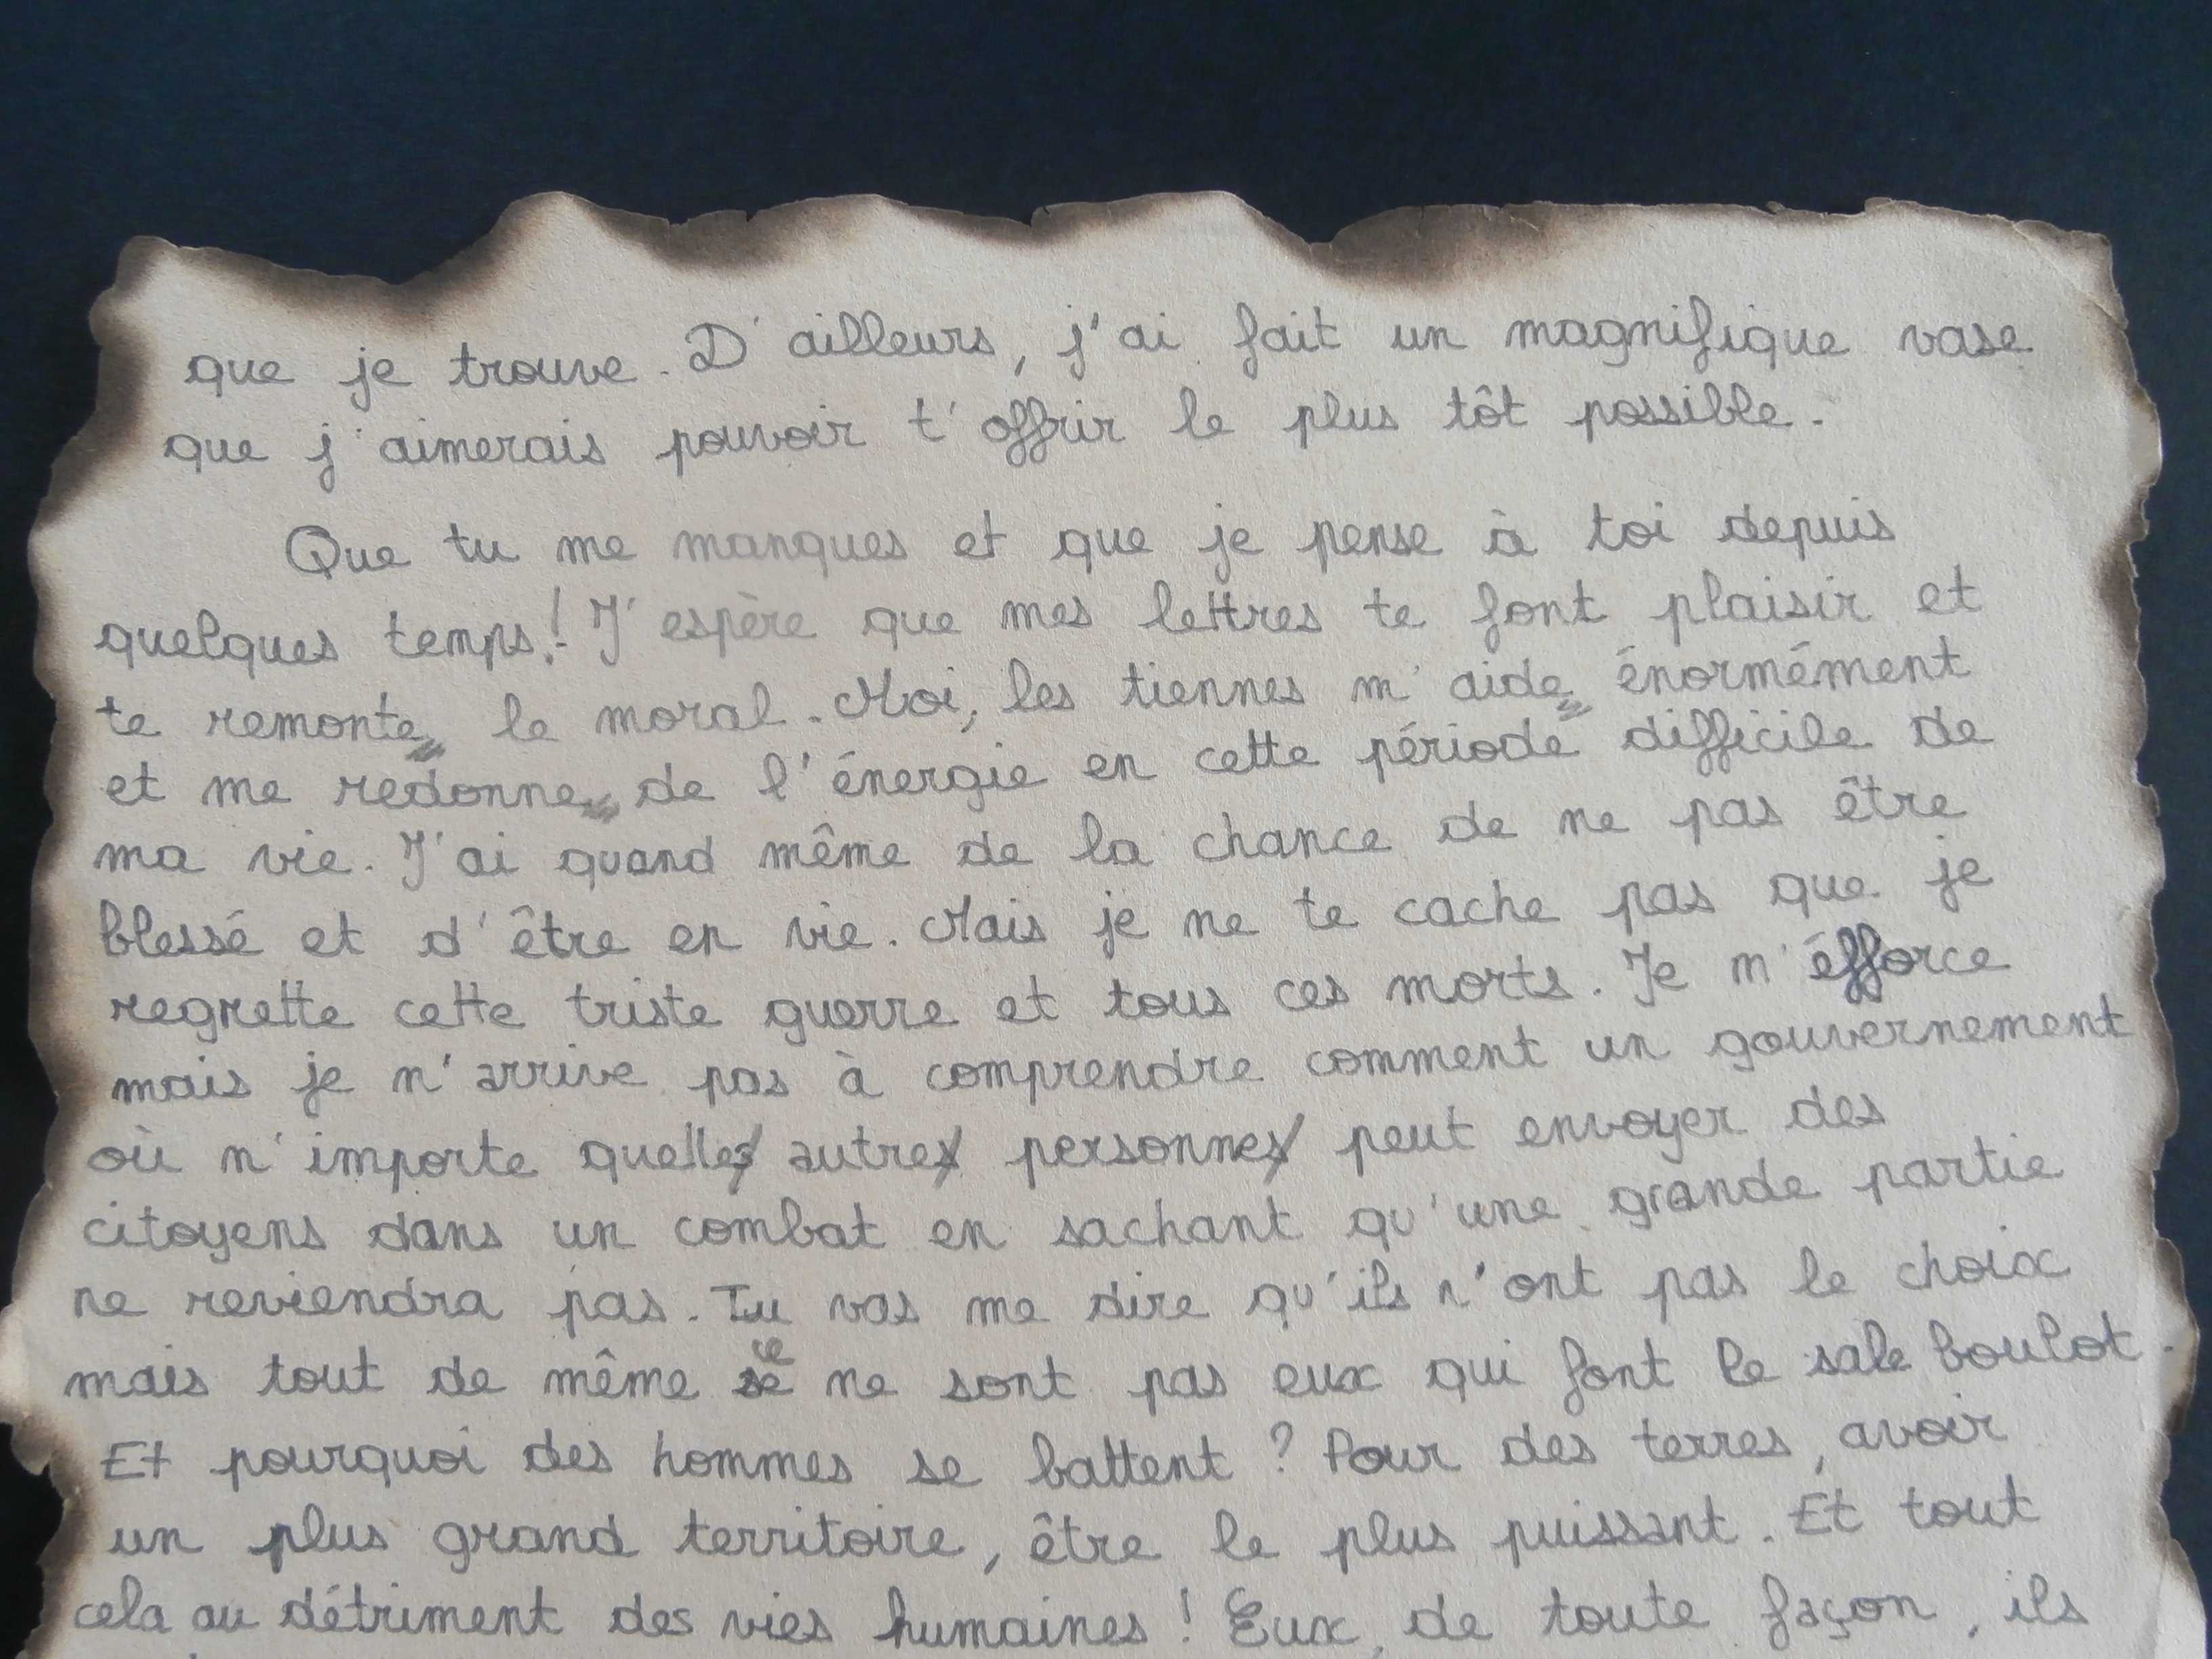 que je trouve. D'ailleurs, j'ai fait un magnifique vase
que j'aimerais pouvoir t'offrir le plus tôt possible.
Que tu me manques et que je pense à toi depuis
quelques temps! J'espère que mes lettres te font plaisir et
te remonte le moral. Moi, les tiennes m'aide énormément
et me redonne de l'énergie en cette période difficile de
ma vie. J'ai quand même de la chance de ne pas être
blessé et d'être en vie. Mais je ne te cache pas que je
regrette cette triste guerre et tous ces morts. Je m'éfforce
mais je n'arrive pas à comprendre comment un gouvernement
où n'importe quelle autre personne peut envoyer des
citoyens dans un combat en sachant qu'une grande partie
ne reviendra pas. Tu vas me dire qu'ils n'ont pas le choix
mais tout de même ce ne sont pas eux qui font le sale boulot.
Et pourquoi des hommes se battent ? Pour des terres, avoir
un plus grand territoire, être le plus puissant. Et tout
cela au détriment des vies humaines ! Eux, de toute façon, ils